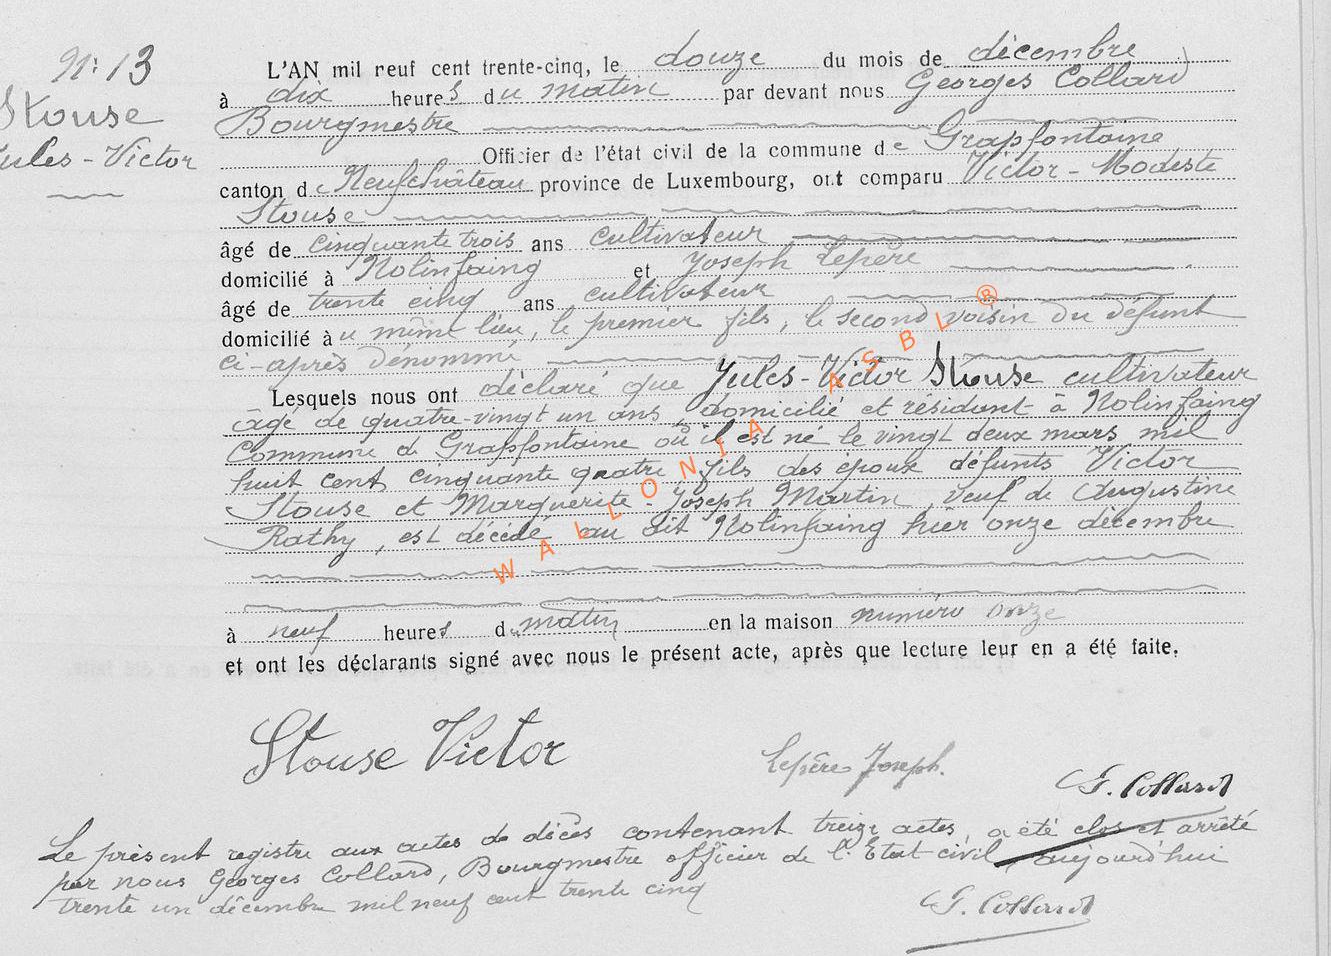 N: 13
Stouse
Jules-Victor
L'AN mil neuf cent trente-cinq, le douze du mois de décembre
à dix heures du matin par devant nous Georges Collard
Bourgmestre
Officier de l'état civil de la commune de Grapfontaine
canton de Neufchâteau province de Luxembourg, ont comparu Victor-Modeste
Stouse
âgé de cinquante trois ans cultivateur
domicilié à Nolinfaing et Joseph Lepère
âgé de trente cinq ans cultivateur
domicilié au même lieu, le premier fils, le second voisin du défunt
ci-après dénommé
Lesquels nous ont déclaré que Jules-Victor Stouse cultivateur
âgé de quatre-vingt un ans, domicilié et résidant à Nolinfaing
Commune de Grapfontaine où il est né le vingt deux mars mil
huit cent cinquante quatre fils des époux défunts Victor
Stouse et Marguerite-Joseph Martin, veuf de Augustine
Rathy, est décédé au dit Nolinfaing hier onze décembre
à neuf heures du matin en la maison numéro onze
et ont les déclarants signé avec nous le présent acte, après que lecture leur en a été faite.
Stouse Victor
Lepère Joseph.
G. Collard
Le présent registre aux actes de décès contenant treize actes, a été clos et arrêté
par nous Georges Collard, Bourgmestre officier de l'Etat civil, aujourd'hui
trente un décembre mil neuf cent trente cinq
G. Collard
WALLONIA ASBL ®